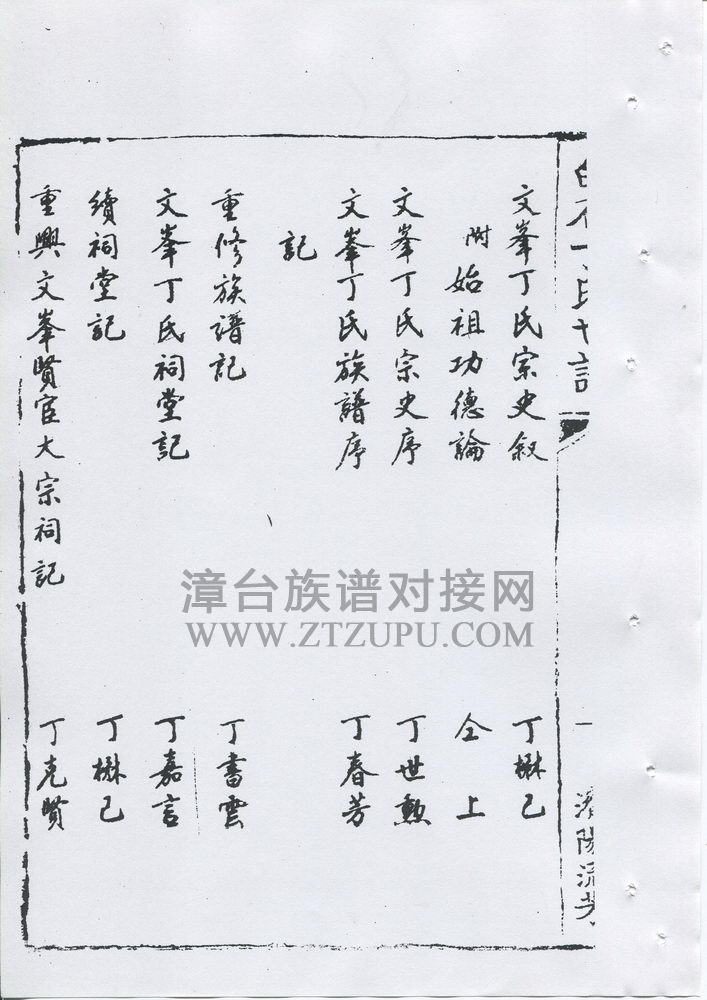 文峯丁氏宗史叙 丁楙己
附 始祖功德論 仝上
文峯丁氏宗史序 丁世勲
文峯丁氏族譜序 丁春芳
記
重修族譜記 丁書雲
文峯丁氏祠堂記 丁嘉言
續祠堂記 丁楙己
重興文峯賢宦大宗祠記 丁克賢
漳台族谱对接网
WWW.ZTZUPU.COM